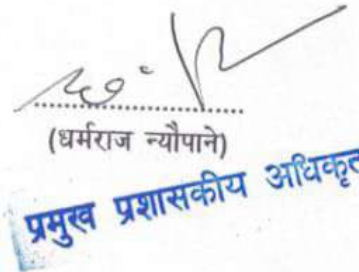 (धर्मराज न्यौपाने)
प्रमुख प्रशासकीय अधिकृत